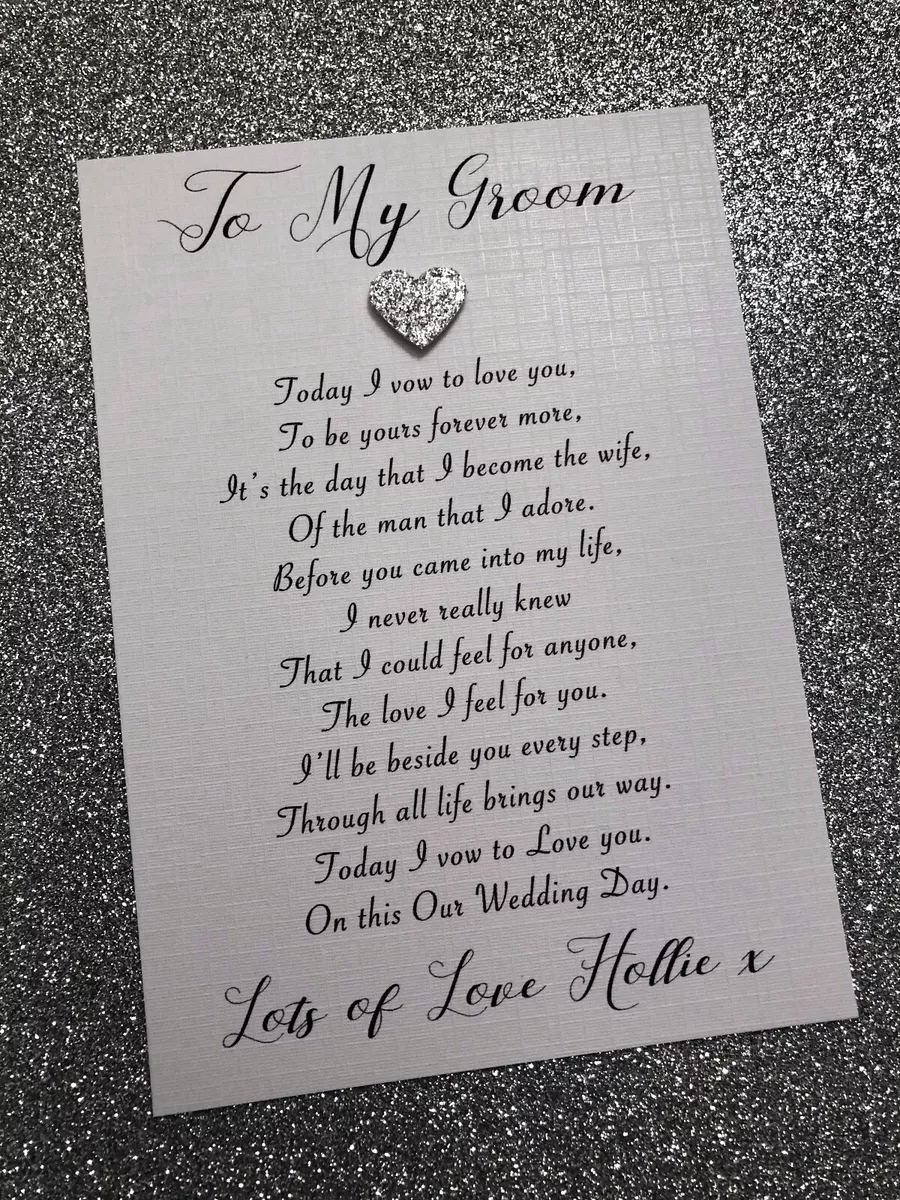 To My Groom
Today I vow to love you,
To be yours forever more,
It's the day that I become the wife,
Of the man that I adore.
Before you came into my life,
I never really knew
That I could feel for anyone,
The love I feel for you.
I'll be beside you every step,
Through all life brings our way.
Today I vow to Love you.
On this Our Wedding Day.
Lots of Love Hollie x